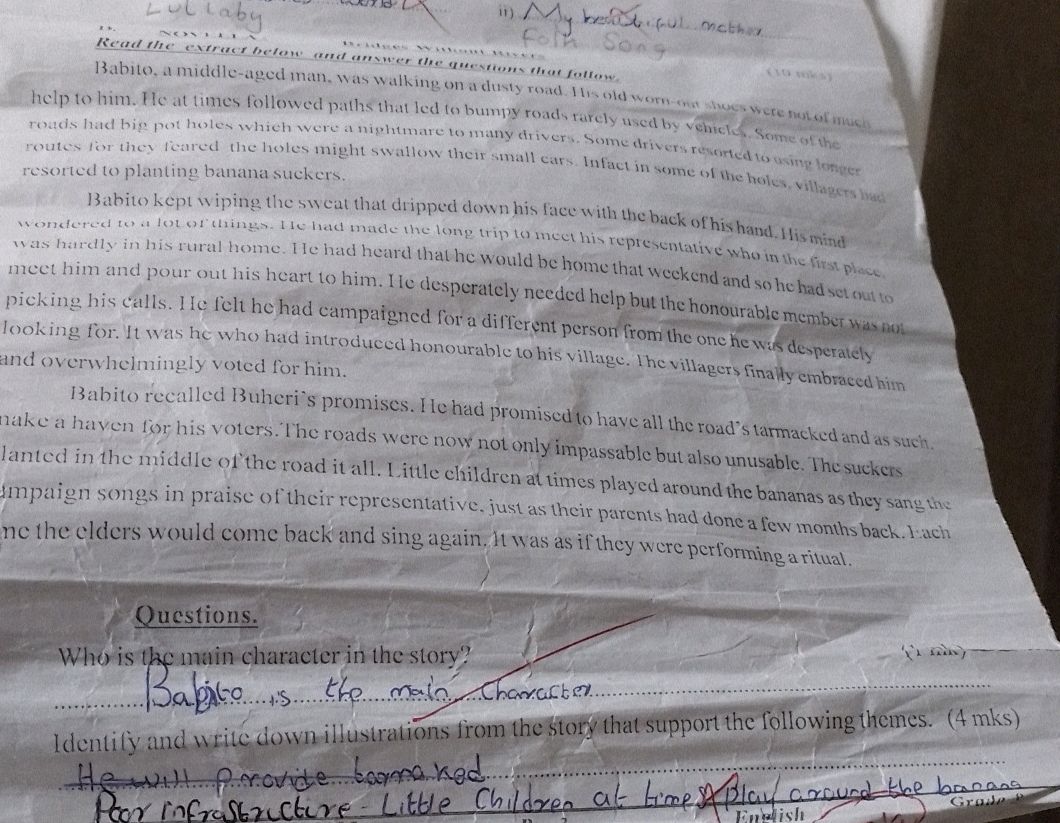 Lullaby
ii) My beautiful mother
Folk Song
NOVELLA
Read the extract below and answer the questions that follow.
(10 mks)
Babito, a middle-aged man, was walking on a dusty road. His old worn-out shoes were not of much
help to him. He at times followed paths that led to bumpy roads rarely used by vehicles. Some of the
roads had big pot holes which were a nightmare to many drivers. Some drivers resorted to using longer
routes for they feared the holes might swallow their small cars. Infact in some of the holes, villagers had
resorted to planting banana suckers.
Babito kept wiping the sweat that dripped down his face with the back of his hand. His mind
wondered to a lot of things. He had made the long trip to meet his representative who in the first place,
was hardly in his rural home. He had heard that he would be home that weekend and so he had set out to
meet him and pour out his heart to him. He desperately needed help but the honourable member was not
picking his calls. He felt he had campaigned for a different person from the one he was desperately
looking for. It was he who had introduced honourable to his village. The villagers finally embraced him
and overwhelmingly voted for him.
Babito recalled Buheri's promises. He had promised to have all the road's tarmacked and as such,
make a haven for his voters.The roads were now not only impassable but also unusable. The suckers
lanted in the middle of the road it all. Little children at times played around the bananas as they sang the
ampaign songs in praise of their representative, just as their parents had done a few months back. Each
me the elders would come back and sing again. It was as if they were performing a ritual.
Questions.
Who is the main character in the story? (1 mk)
Babito is the main character
Identify and write down illustrations from the story that support the following themes. (4 mks)
He will provide tarmaked
Poor infrastructure - Little Children at times play around the banana
English
Grade